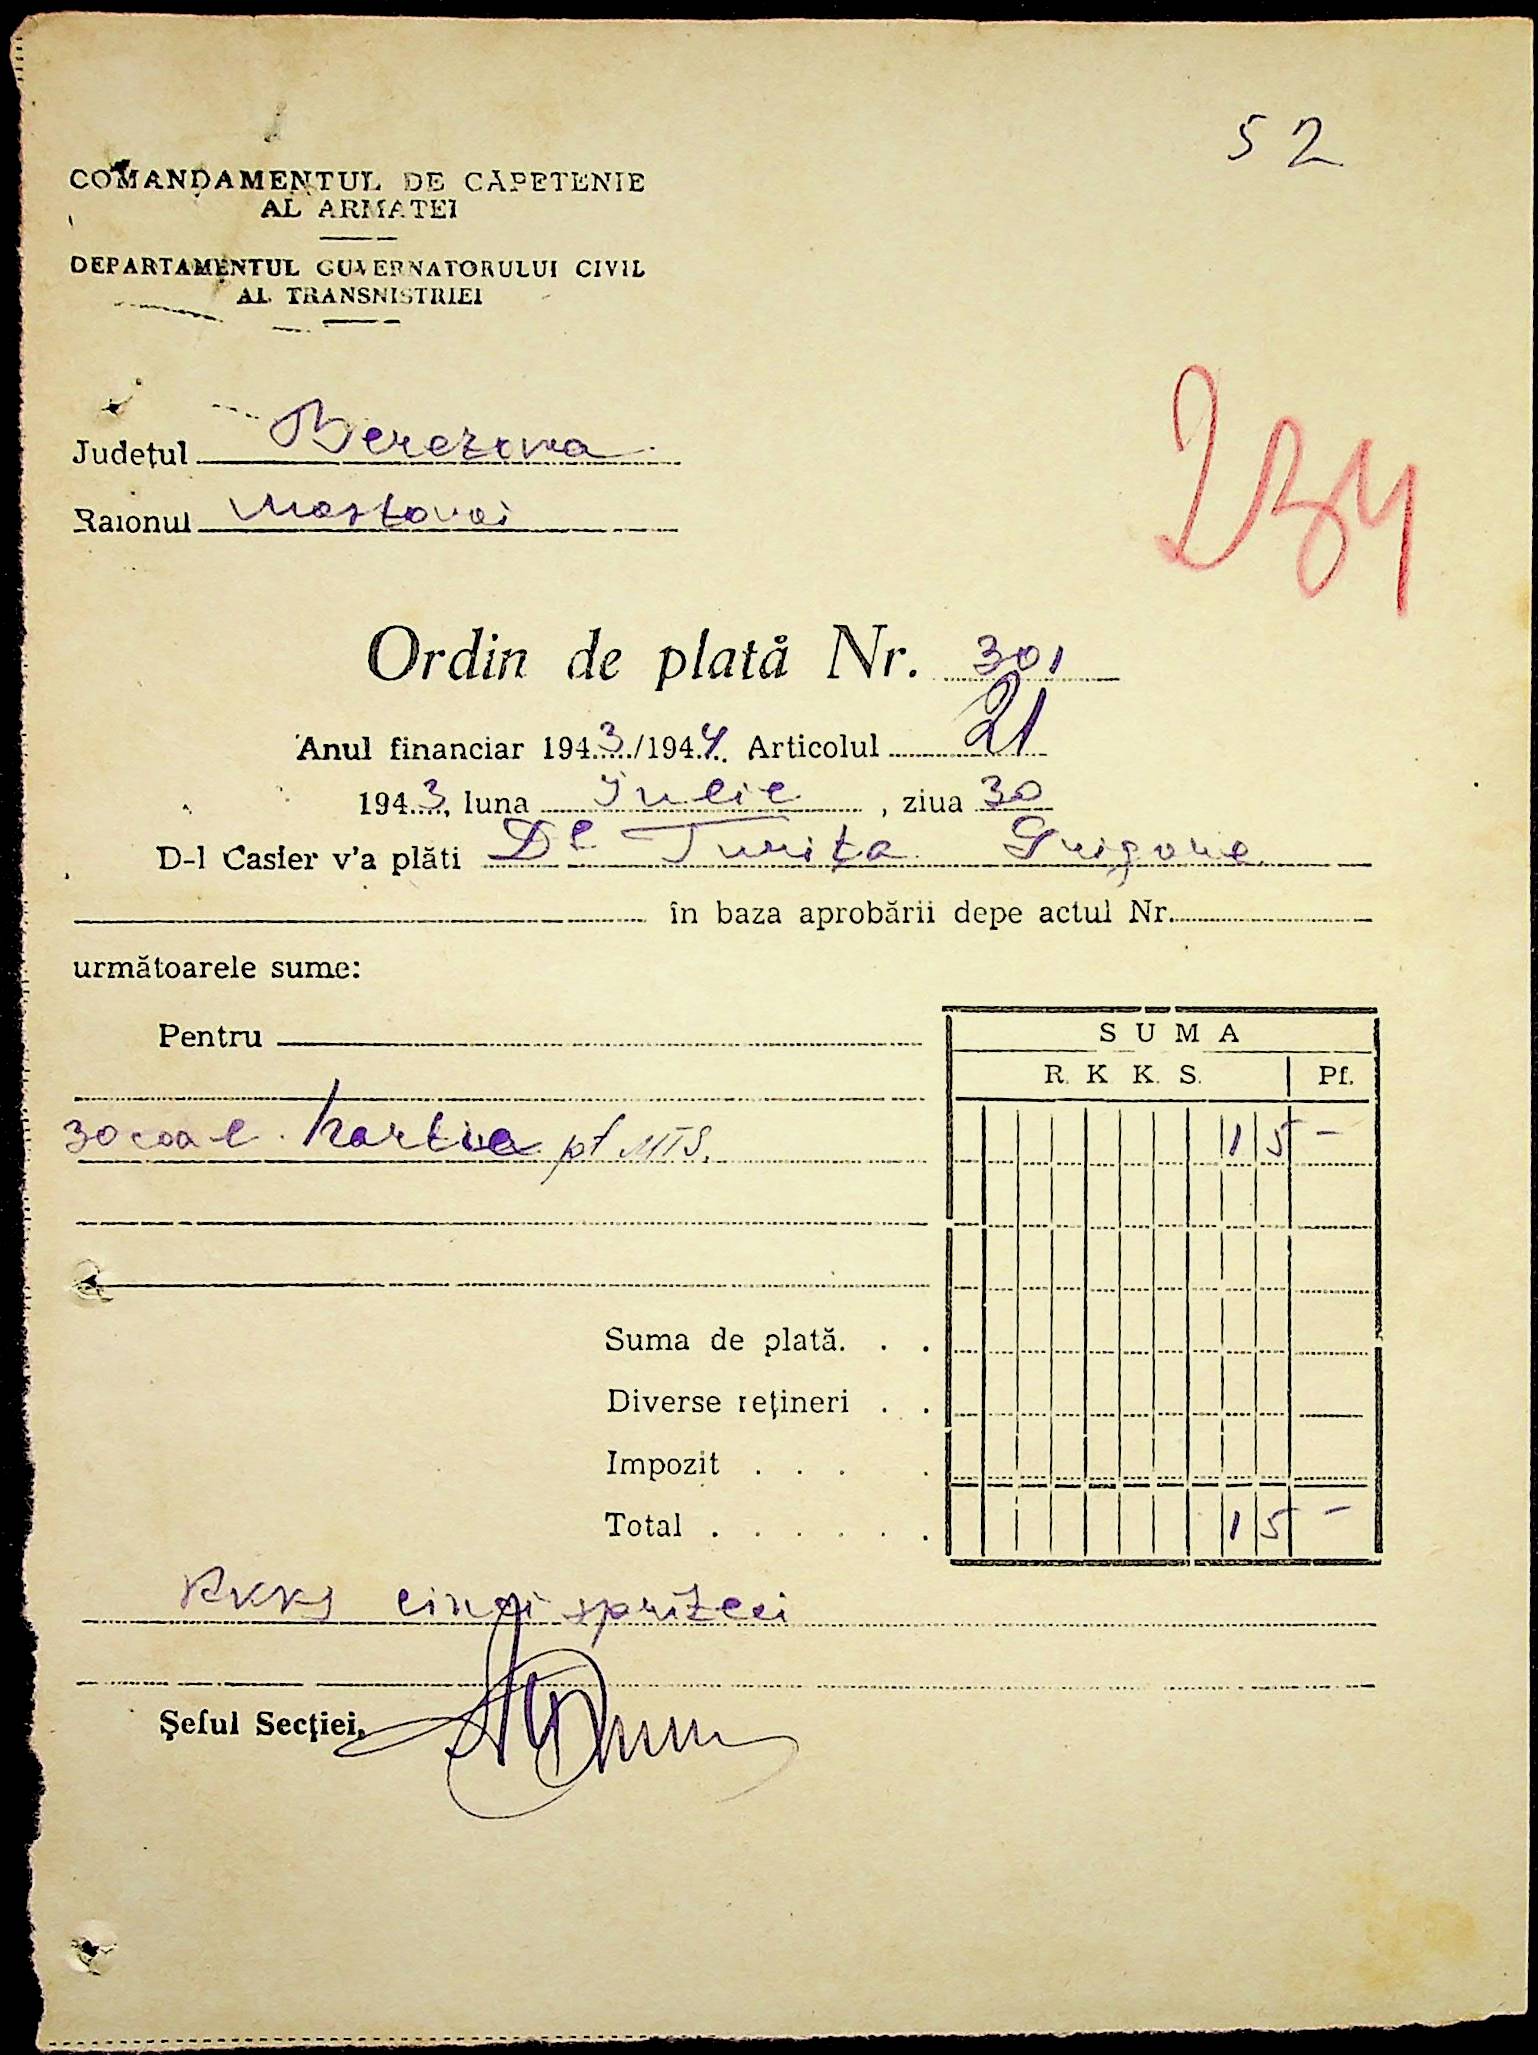 52
COMANDAMENTUL DE CĂPETENIE
AL ARMATEI
DEPARTAMENTUL GUVERNATORULUI CIVIL
AL TRANSNISTRIEI
Județul Berezovca
Raionul Mostovoi
234
Ordin de plată Nr. 301
Anul financiar 1943/1944. Articolul 21
1943, luna Iulie, ziua 30
D-l Casier v'a plăti Dl Turița Grigore
în baza aprobării depe actul Nr.
următoarele sume:
Pentru
SUMA
R. K. K. S. Pf.
30 coale hartie pt MTS. 15 –
Suma de plată. . .
Diverse rețineri . .
Impozit . . . .
Total . . . . . . 15 –
RKKS cinci sprizeci
Șeful Secției,